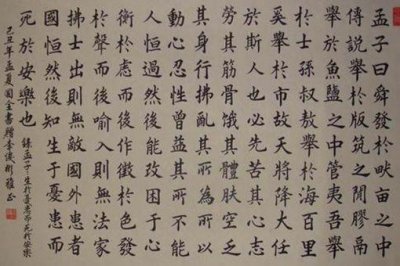 孟子曰舜發於畎亩之中
傅說舉於版筑之間膠鬲
舉於魚鹽之中管夷吾舉
於士孫叔敖舉於海百里
奚舉於市故天將降大任
於斯人也必先苦其心志
勞其筋骨餓其體膚空乏
其身行拂亂其所為所以
動心忍性曾益其所不能
人恒過然後能改困於心
衡於慮而後作徵於色發
於聲而後喻入則無法家
拂士出則無敵國外患者
國恒然後知生于憂患而
死於安樂也
錄孟子生於憂患而死於安樂
己丑年孟夏國全書贈李俊彬雅正